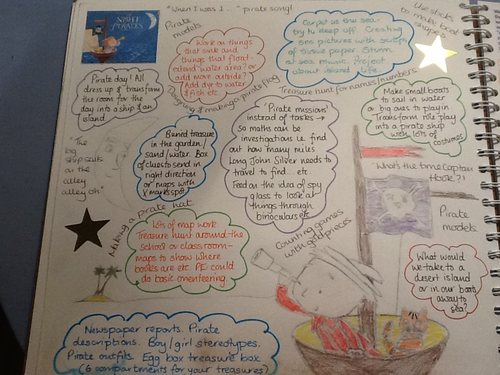 "When I was 1..." pirate song!
NIGHT
PIRATES
Pirate
models
Work on things
that sink and
things that float-
extend water area? or
add more outside?
Add dye to water
& fish etc.
Carpet as the sea-
try to keep off. Creating
sea pictures with
of tissue paper. Storm
at sea music. Project
about island life.
Use sticks
to make boat
shapes
Pirate day! All
dress up & transform
the room for the
day into a ship & an
island
Designing & making a pirate flag
Treasure hunt for names/numbers
'Pirate missions'
instead of tasks →
so maths can be
investigations i.e. find
out how many miles
Long John Silver needs to
travel to find... etc
Feed on the idea of spy
glass to look at
things through
binoculars etc
Make small boats
to sail in water
or big ones to play in.
Transform role play
into a pirate ship
with lots of
costumes.
Buried treasure
in the garden/
sand/water. Box
of clues to send in
right direction
or maps with
X marks spot
"The
big
ship sails
on the
alley
alley oh"
What's the time Captain
Hook?!
Making a pirate hat
Lots of map work
Treasure hunt around the
school or classroom-
maps to show where
books are etc. PE could
do basic orienteering.
Counting games
with gold pieces
Pirate
models
What would
we take to a
desert island
or in our boat
away to
sea?
Newspaper reports. Pirate
descriptions. Boy/girl stereotypes.
Pirate outfits. Egg box treasure box
(6 compartments for your treasures)